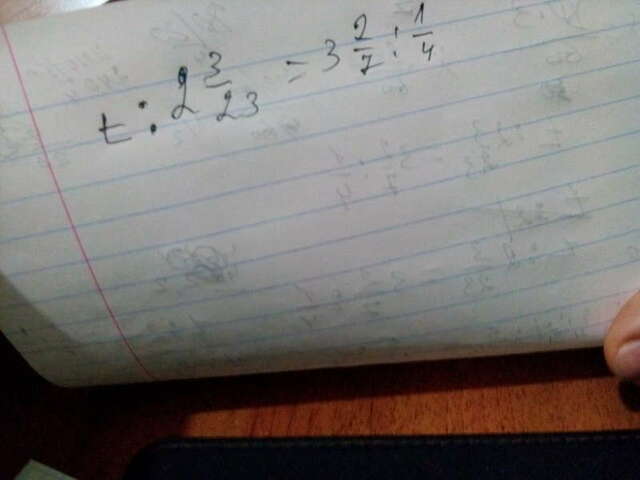 t : 2 3/23 = 3 2/7 : 1/4